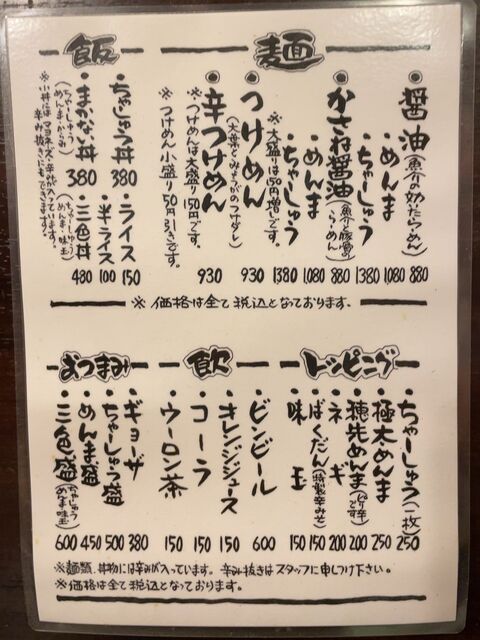 麺
醤油(魚介の効いたらーめん) 880
めんま 1080
ちゃーしゅう 1380
かさね醤油(魚介と豚骨のらーめん) 880
めんま 1080
ちゃーしゅう 1380
※大盛りは150円増しです。
つけめん 930
(大葉とみょうがのつけダレ)
辛つけめん 930
※つけめんは大盛り150円です。
※つけめん小盛り50円引きです。
飯
ちゃしゅう丼 380
ライス 150
半ライス 100
まかない丼 380
(ちゃーしゅうめんま・からみ)
三色丼 480
(ちゃーしゅうめんま・味玉)
※小丼にはマヨネーズ・辛味が入っています。
辛み抜きにもできます。
※価格は全て税込となっております。
トッピング
ちゃーしゅう(一枚) 250
極太めんま 250
穂先めんま(ピリ辛です) 200
ネギ 200
ばくだん(特製辛みそ) 150
味玉 150
飲
ビンビール 600
オレンジジュース 150
コーラ 150
ウーロン茶 150
おつまみ
ギョーザ 380
ちゃーしゅう盛 500
めんま盛 450
三色盛(ちゃーしゅうめんま味玉) 600
※麺類、丼物には辛みが入っています。辛み抜きはスタッフに申しつけ下さい。
※価格は全て税込となっております。